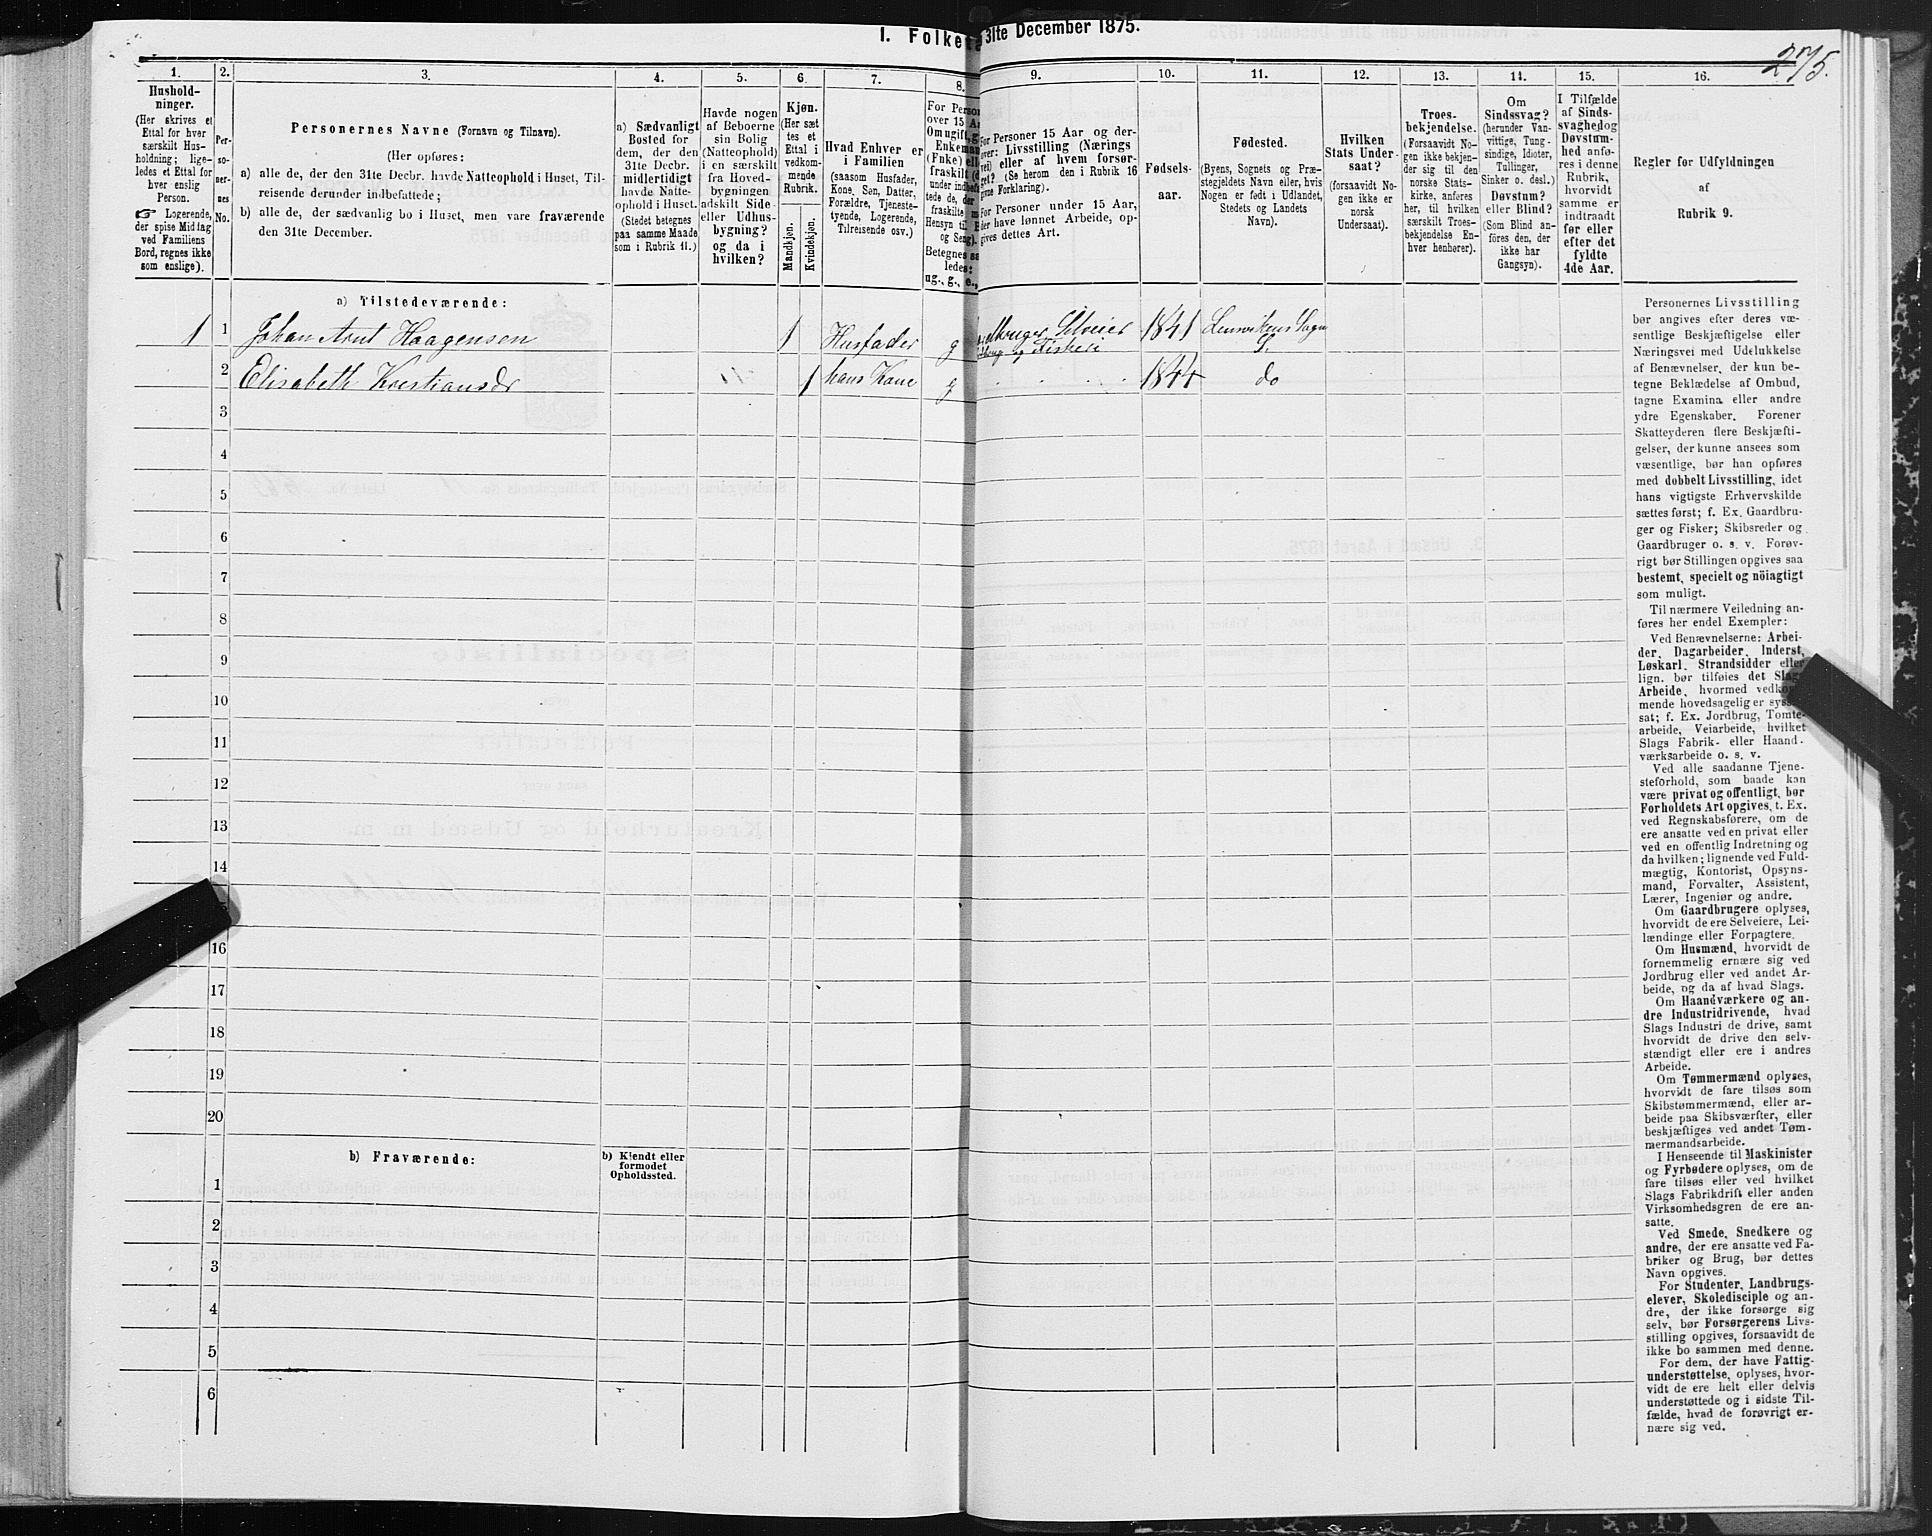 I. Folket
31te December 1875.
275.
1.
Husholdninger.
(Her skrives et
Ettal for hver
særskilt Husholdning; ligeledes et Ettal for
hver enslig
Person.
☞ Logerende,
der spise Middag
ved Familiens
Bord, regnes ikke
som enslige).
2.
Personernes
No.
3.
Personernes Navne (Fornavn og Tilnavn).
(Her opføres:
a) alle de, der den 31te Decbr. havde Natteophold i Huset, Tilreisende derunder indbefattede;
b) alle de, der sædvanlig bo i Huset, men vare fraværende
den 31te December.
4.
a) Sædvanligt
Bosted for
dem, der den
31te Decbr.
midlertidigt
havde Natteophold i Huset.
(Stedet betegnes
paa samme Maade
som i Rubrik 11.)
5.
Havde nogen
af Beboerne
sin Bolig
(Natteophold)
i en særskilt
fra Hovedbygningen
adskilt Sideeller Udhusbygning?
og da i
hvilken?
6.
Kjøn.
(Her sættes et
Ettal i
vedkommende
Rubrik.
Mandkjøn.
Kvindekjøn.
7.
Hvad Enhver er
i Familien
(saasom Husfader,
Kone, Søn, Datter,
Forældre, Tjenestetyende, Logerende,
Tilreisende osv.)
8.
For Person
over 15 A
Om ugift, g
Enkeman
(Fnke) ell
fraskilt (
under indbefattede de, der
fraskilte
Hensyn til
og Seng).
Betegnes saaledes:
ug., g., e.,
9.
For Personer 15 Aar og derover: Livsstilling (Nærings
vei) eller af hvem forsørget? (Se herom den i Rubrik 16
givne Forklaring).
For Personer under 15 Aar,
der have lønnet Arbeide, opgives dettes Art.
10.
Fødselsaar.
11.
Fødested.
(Byens, Sognets og Præstegjeldets Navn eller, hvis
Nogen er født i Udlandet,
Stedets og Landets
Navn).
12.
Hvilken
Stats Undersaat?
(forsaavidt Nogen ikke er
norsk
Undersaat).
13.
Troesbekjendelse.
(Forsaavidt Nogen ikke bekjender sig til den
norske Statskirke, anføres
her, til hvilken
særskilt Troesbekjendelse Enhver henhører).
14.
Om
Sindssvag?
(herunder Vanvittige, Tungsindige, Idioter,
Tullinger,
Sinker o. desl.)
Døvstum?
eller Blind?
(Som Blind anføres den, der
ikke har
Gangsyn).
15.
I Tilfælde
af Sindssvaghed og
Døvstumhed anføres i denne
Rubrik,
hvorvidt
samme er
indtraadt
før eller
efter det
fyldte
4de Aar.
16.
Regler for Udfyldningen
af
Rubrik 9.
a) Tilstedeværende:
1 1 Johan Arnt Haagensen 1 Husfader g Selveier 1841 Lensvikens Sogn
og Fiskeri
2 Elisabeth Kristiansdr 1 hans Kone g 1844 do
3
4
5
6
7
8
9
10
11
12
13
14
16
17
18
19
20
b) Fraværende:
b) Kjendt eller
formodet
Opholdssted.
1
2
3
4
5
6
Personernes Livsstilling
bør angives efter deres væsentlige Beskjæftigelse eller
Næringsvei med Udelukkelse
af Benævnelser, der kun betegne Beklædelse af Ombud,
tagne Examina eller andre
ydre Egenskaber. Forener
Skatteyderen flere Beskjæftigelser, der kunne ansees som
væsentlige, bør han opføres
med dobbelt Livsstilling, idet
hans vigtigste Erhvervskilde
sættes først; f. Ex. Gaardbruger og Fisker; Skibsreder og
Gaardbruger o. s. v. Forøvrigt bør Stillingen opgives saa
bestemt, specielt og nöiagtigt
som muligt.
Til nærmere Veiledning anføres her endel Exempler:
Ved Benævnelserne: Arbeider, Dagarbeider, Inderst,
Løskarl, Strandsidder eller
lign. bør tilføies det Slags
Arbeide, hvormed vedkommende hovedsagelig er sysselsat; f. Ex. Jordbrug, Tomtearbeide, Veiarbeide, hvilket
Slags Fabrik- eller Haandværksarbeide o. s. v.
Ved alle saadanne Tjenesteforhold, som baade kan
være privat og offentligt, bør
Forholdets Art opgives, t. Ex.
ved Regnskabsførere, om de
ere ansatte ved en privat eller
ved en offentlig Indretning og
da hvilken; lignende ved Fuldmægtig, Kontorist, Opsynsmand, Forvalter, Assistent,
Lærer, Ingeniør og andre.
Om Gaardbrugere oplyses,
hvorvidt de ere Selveiere, Leilændinge eller Forpagtere.
Om Husmænd, hvorvidt de
fornemmelig ernære sig ved
Jordbrug eller ved andet Arbeide, og da af hvad Slags.
Om Haandværkere og andre Industridrivende, hvad
Slags Industri de drive, samt
hvorvidt de drive den selvstændigt eller ere i andres
Arbeide.
Om Tømmermænd oplyses,
hvorvidt de fare tilsøs som
Skibstømmermænd, eller arbeide paa Skibsværfter, eller
beskjæftiges ved andet Tømmermandsarbeide.
I Henseende til Maskinister
og Fyrbødere oplyses, om de
fare tilsøs eller ved hvilket
Slags Fabrikdrift eller anden
Virksomhedsgren de ere ansatte.
Ved Smede, Snedkere og
andre, der ere ansatte ved Fabriker og Brug, bør dettes
Navn opgives.
For Studenter, Landbrugselever, Skoledisciple og andre, der ikke forsørge sig
selv, bør Forsørgerens Livsstilling opgives, forsaavidt de
ikke bo sammen med denne.
For dem, der have Fattigunderstøttelse, oplyses, hvorvidt de ere helt eller delvis
understøttede og i sidste Tilfælde, hvad de forøvrigt ernære sig ved.